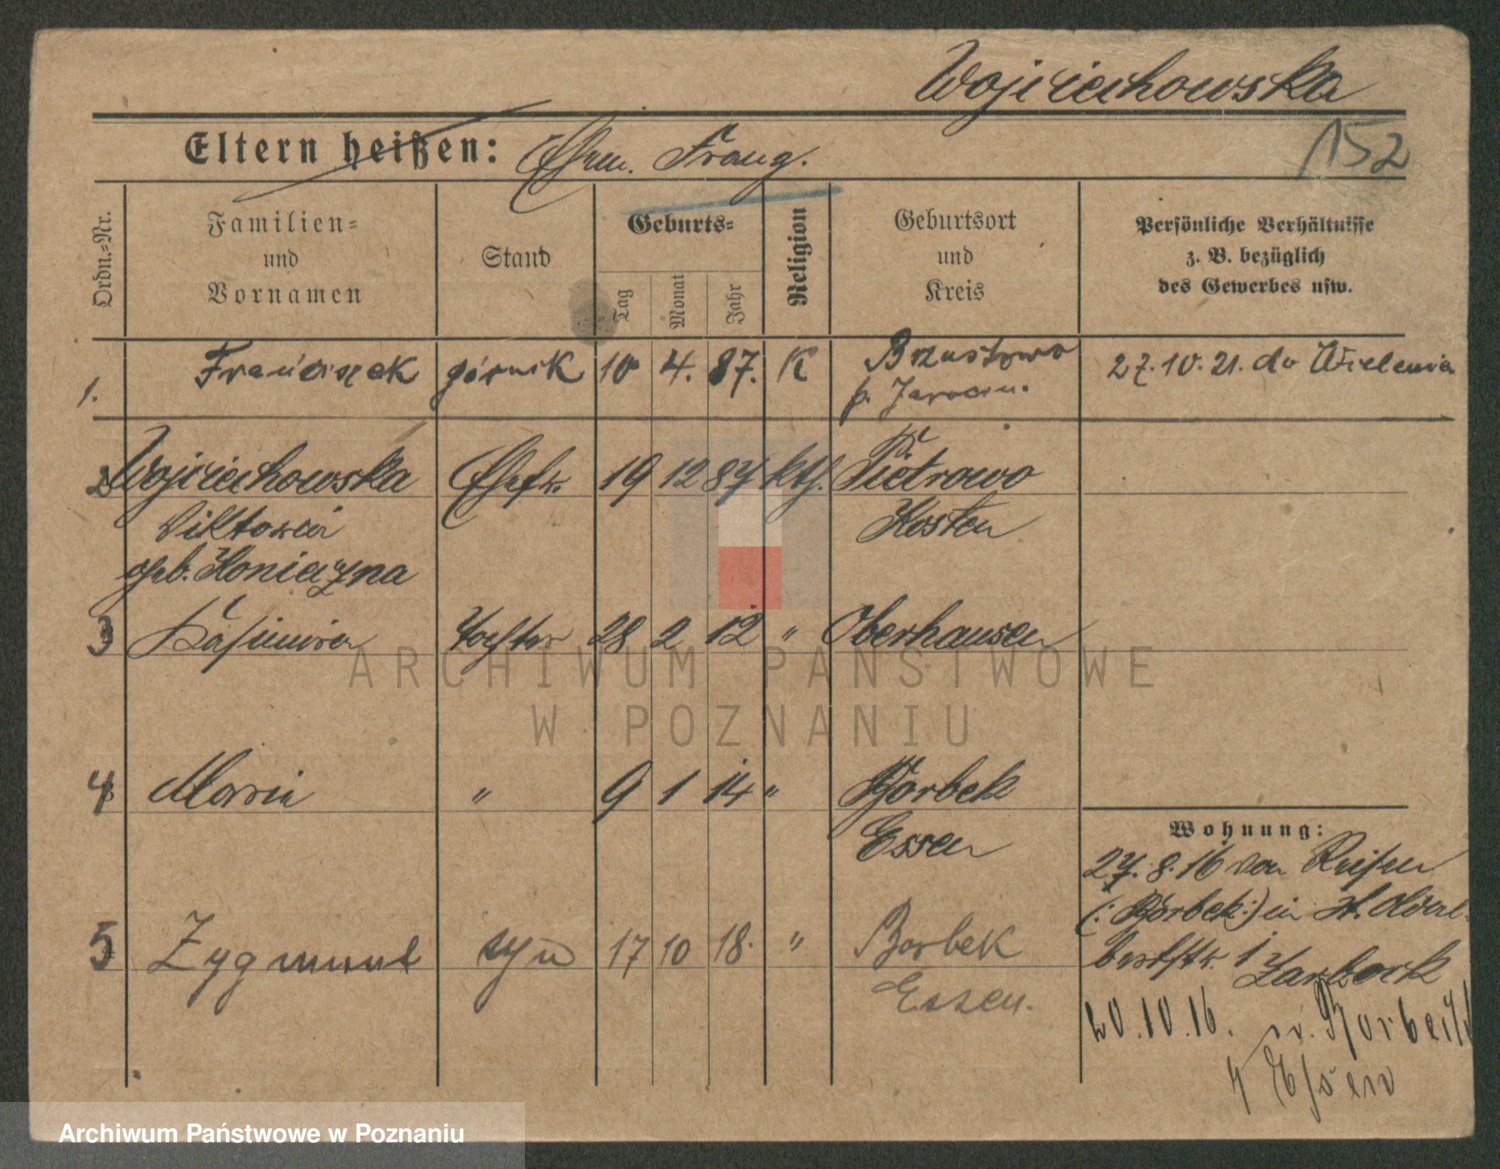 Wojciechowska
152
Eltern heißen: Ehem. Franz.
Ordn.-Nr.
Familien-
und
Vornamen
Stand
Geburts-
Tag
Monat
Jahr
Religion
Geburtsort
und
Kreis
Persönliche Verhältnisse
z. B. bezüglich
des Gewerbes usw.
1. Franciszek górnik 10 4. 87. K Brzustowo 27.10.21. do Wielenia
p. Jarocin.
2 Wojciechowska Ehefr. 19 12 87 kth. Pietrowo
Viktoria Kosten
geb. Koniczna
3 Kasimira Tochter 28 2 12 " Oberhausen
ARCHIWUM PAŃSTWOWE
W POZNANIU
4 Maria " 9 1 14 " Borbek
Essen
Wohnung:
27.8.16 von Reisen
(: Borbek :) in
5 Zygmunt syn 17 10 18. " Borbek
Essen.
20.10.16. n. Borbeck
Essen
Archiwum Państwowe w Poznaniu